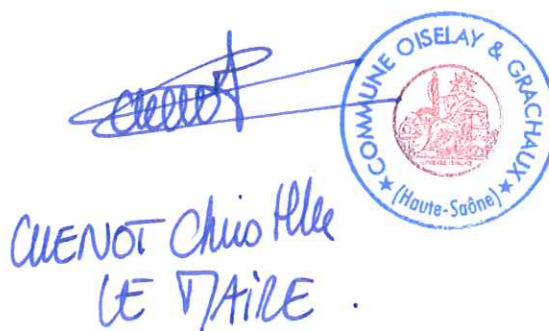 Cuenot
★ COMMUNE OISELAY & GRACHAUX ★
(Haute-Saône)
CUENOT Christelle
LE MAIRE .